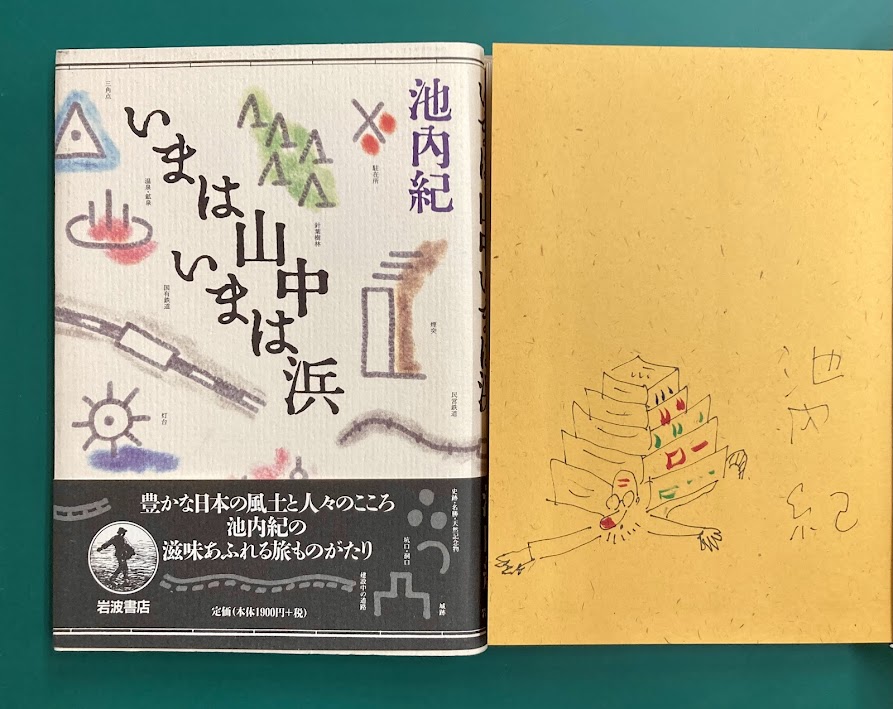 池内紀
いまは山中
いまは浜
三角点
温泉・鉱泉
針葉樹林
駐在所
国有鉄道
煙突
灯台
民営鉄道
豊かな日本の風土と人々のこころ
池内紀の
滋味あふれる旅ものがたり
史跡・名勝・天然記念物
坑口・洞口
建設中の道路
城跡
岩波書店
定価(本体1900円+税)
池内紀